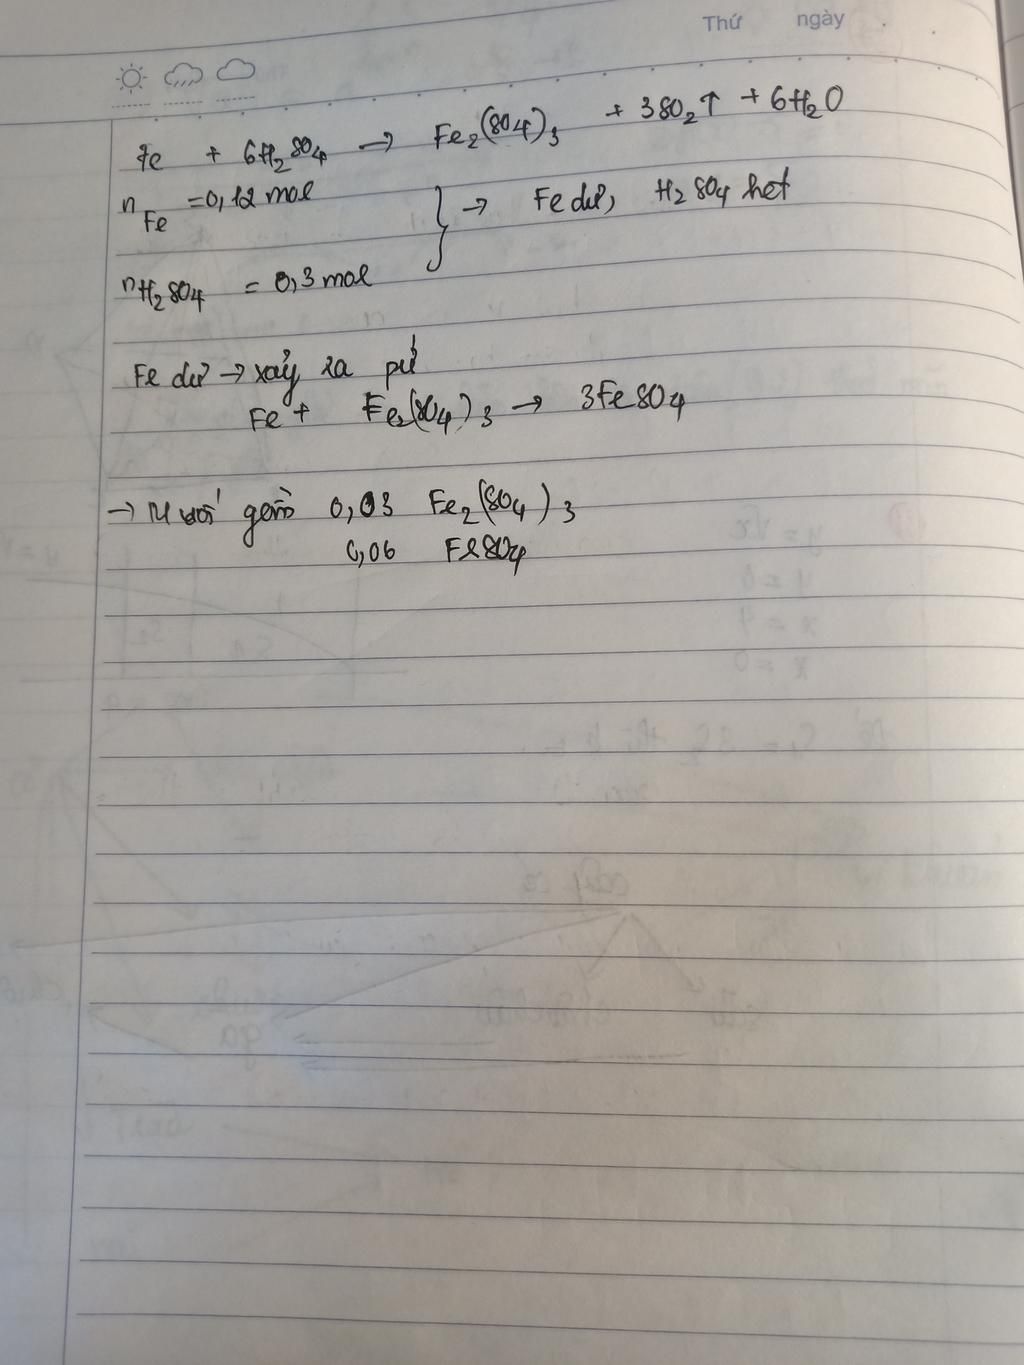 Thứ ngày
Fe + 6H2SO4 → Fe2(SO4)3 + 3SO2↑ + 6H2O
nFe = 0,12 mol } → Fe dư, H2SO4 hết
nH2SO4 = 0,3 mol
Fe dư → xảy ra pứ
Fe + Fe2(SO4)3 → 3FeSO4
→ Muối gồm 0,03 Fe2(SO4)3
0,06 FeSO4